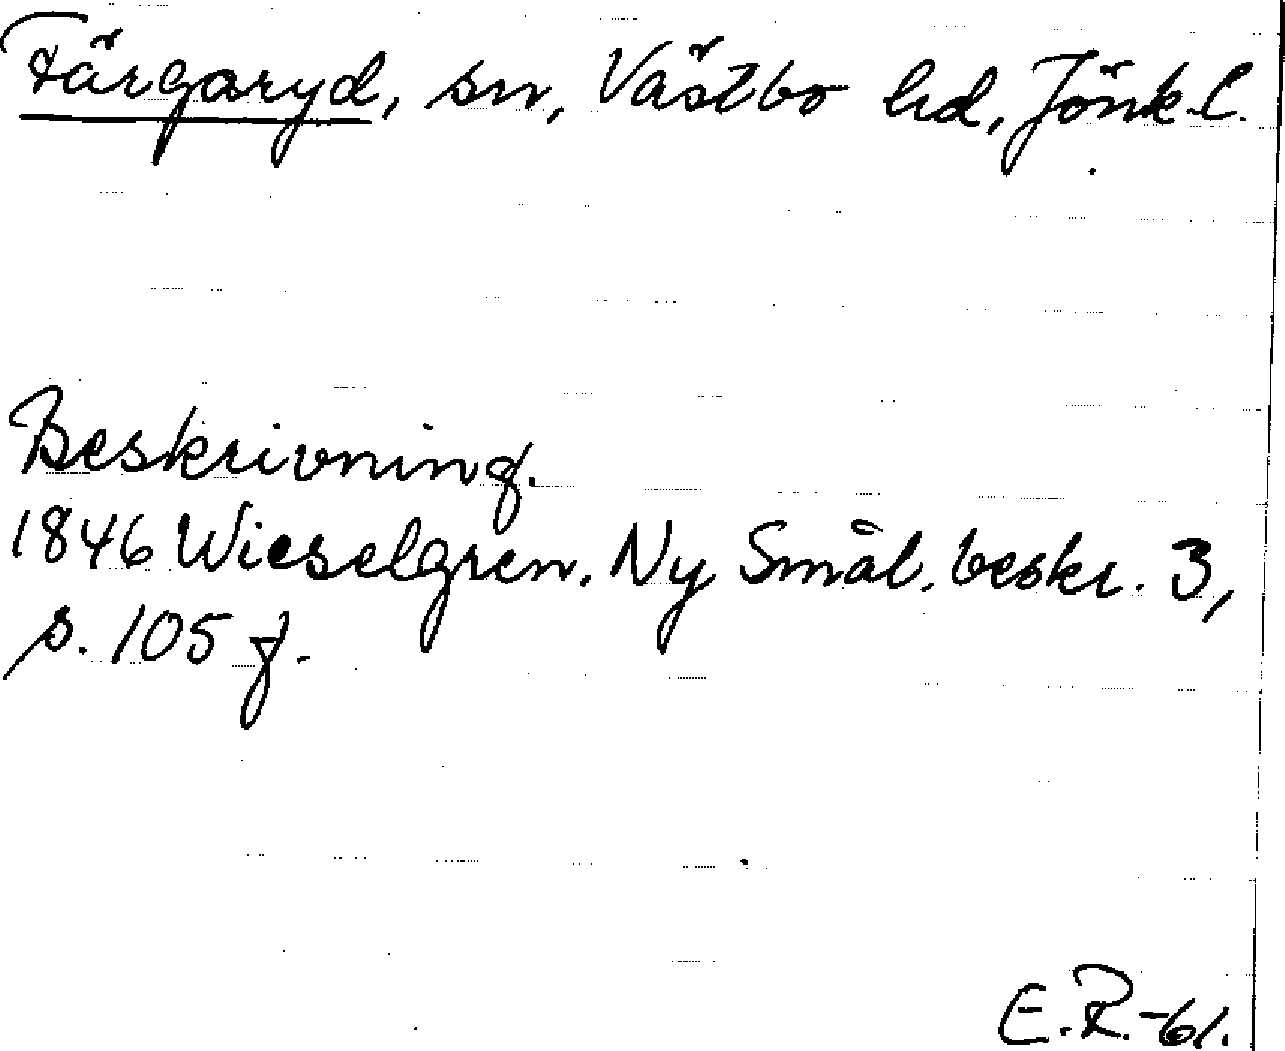 Färgaryd, sn, Västbo hd, Jönk.l.
Beskrivning.
1846 Wieselgren. Ny Smål. beskr. 3,
s. 105 f.
E.R.-61.